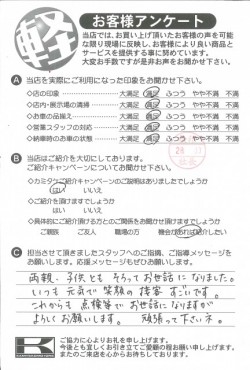 軽
お客様アンケート
当店では、お買い上げ頂いたお客様の声を可能
な限り現場に反映し、お客様により良い商品と
サービスを提供する事に努めています。
大変お手数ですが是非お声をお聞かせ下さい。
A 当店を実際にご利用になった印象をお聞かせ下さい。
◇店の印象 大満足 満足 ふつう やや不満 不満
◇店内・展示場の清掃 大満足 満足 ふつう やや不満 不満
◇お車の品揃え 大満足 満足 ふつう やや不満 不満
◇営業スタッフの対応 大満足 満足 ふつう やや不満 不満
◇納車時のお車の状態 大満足 満足 ふつう やや不満 不満
B 当店はご紹介を大切にしております。
ご紹介キャンペーンについてお聞かせ下さい。
◇カミタケご紹介キャンペーンのご説明はありましたでしょうか
はい いいえ
◇ご紹介を頂けますでしょうか
はい いいえ
◇具体的にご紹介頂ける方とのご関係をお聞かせ頂けますでしょうか
ご親族 ご友人 職場の方 機会があれば紹介したい
C 担当させて頂きましたスタッフへのご指摘、ご指導メッセージを
お願いします。応援メッセージもぜひお願いします。
両親、子供とも そろってお世話になりました。
いつも元気で笑顔の接客 すごいです。
これからも 点検等でお世話になりますが
よろしくお願いします。 頑張って下さいネ。
K
ご協力に心よりお礼を申し上げます。
今後とも宜しくお引き立てご愛顧の程お願い申し上げます。
またのご来店を心からお待ちしております。